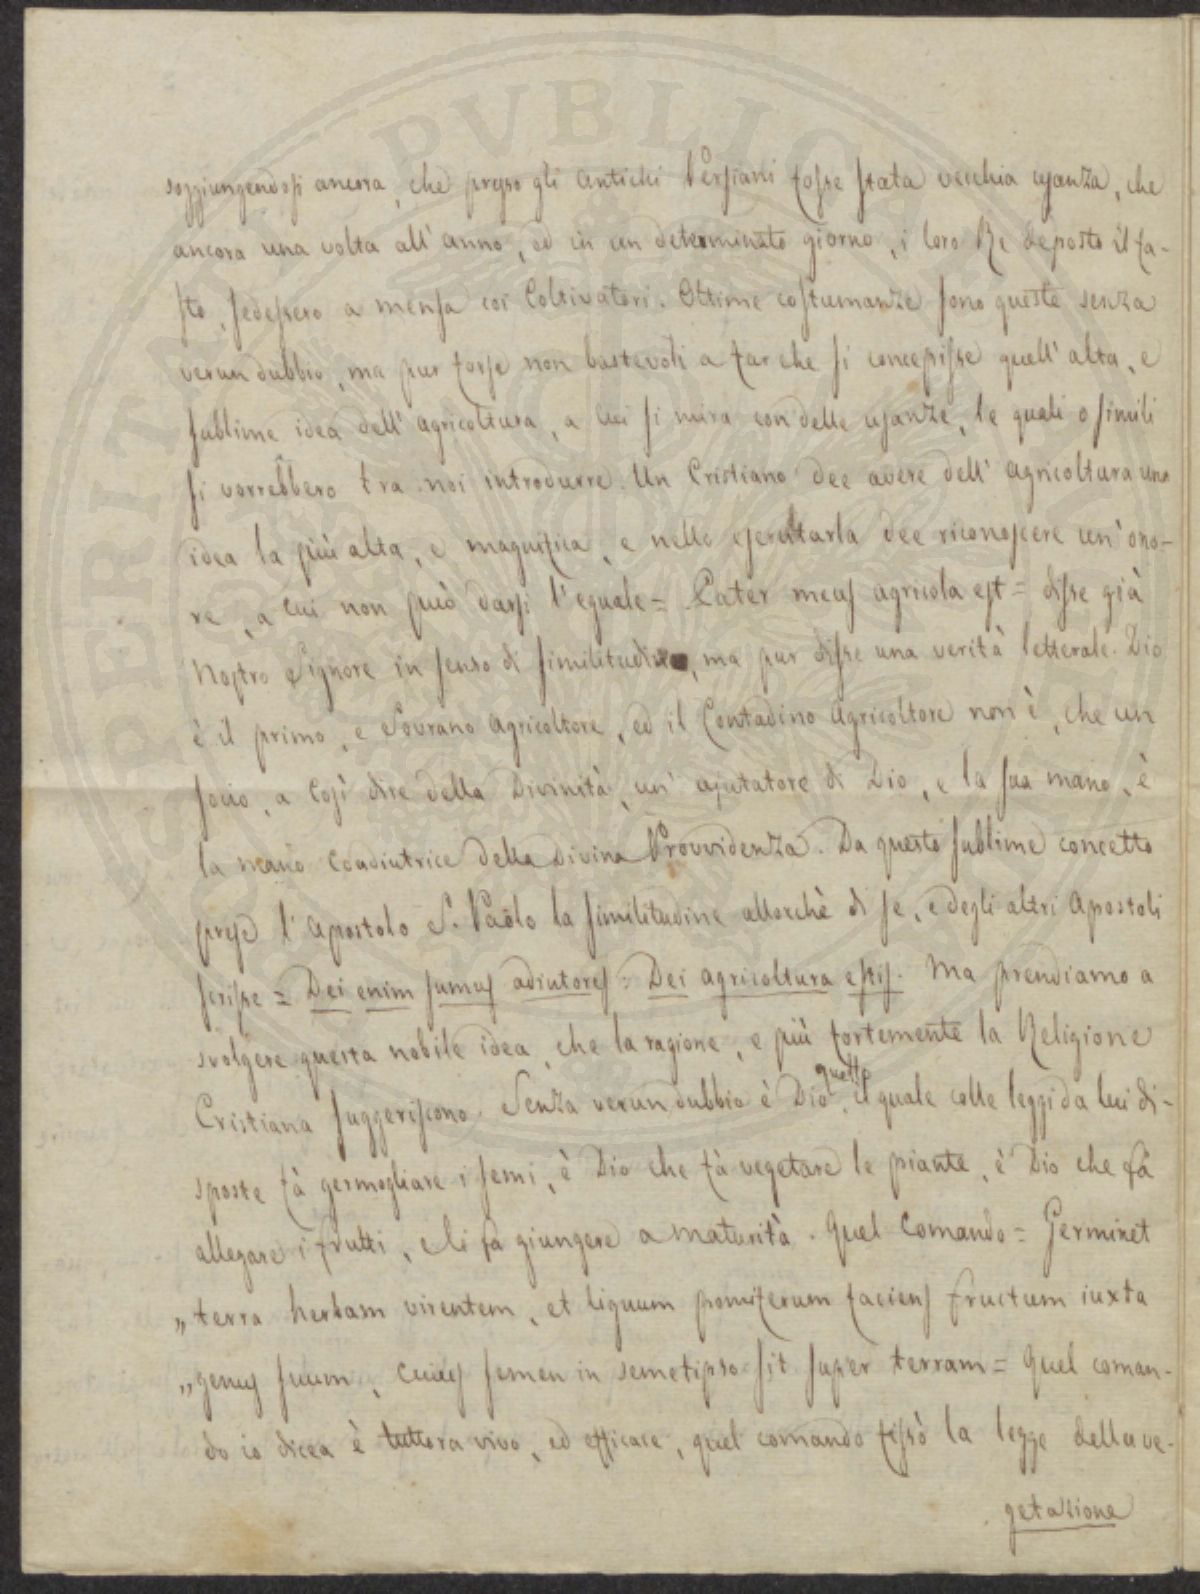 soggiungendosi ancora, che presso gli antichi Persiani fosse stata vecchia usanza, che
ancora una volta all'anno, ed in un determinato giorno, i loro Re deposto il fa-
sto, sedessero a mensa coi Coltivatori. Ottime costumanze sono queste senza
verun dubbio, ma pur forse non bastevoli a far che si concepisse quell'alta, e
sublime idea dell'agricoltura, a cui si mira con delle usanze, le quali o simili
si vorrebbero tra noi introdurre. Un Cristiano dee avere dell'agricoltura una
idea la più alta, e magnifica, e nello esercitarla dee riconoscere un'ono-
re, a cui non può darsi l'eguale = Pater meus agricola est = disse già
Nostro Signore in senso di similitudine, ma pur disse una verità letterale. Dio
è il primo, e Sovrano agricoltore, ed il Contadino agricoltore non è, che un
socio, a così dire della Divinità, un'ajutatore di Dio, e la sua mano, è
la mano coadiutrice della Divina Provvidenza. Da questo sublime concetto
prese l'Apostolo S. Paolo la similitudine allorchè di se, e degli altri Apostoli
scrisse = Dei enim sumus adiutores: Dei agricoltura estis. Ma prendiamo a
svolgere questa nobile idea, che la ragione, e più fortemente la Religione
Cristiana suggeriscono. Senza verun dubbio è Dio quello, il quale colle leggi da lui di-
sposte fà germogliare i semi, è Dio che fà vegetare le piante, è Dio che fà
allegare i frutti, e li fa giungere a maturità. Quel Comando = Germinet
„ terra herbam virentem, et lignum pomiferum faciens fructum iuxta
„ genus suum, cuius semen in semetipso sit super terram = Quel coman-
do io dicea è tuttora vivo, ed efficace, quel comando fissò la legge della ve-
getazione
PVBLICAE